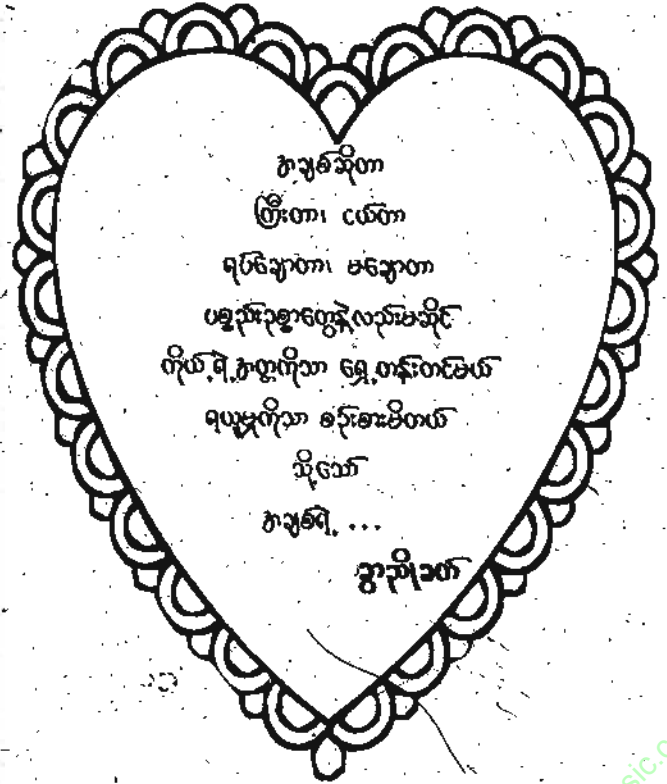 အချစ်ဆိုတာ
ကြီးတာ၊ ငယ်တာ
ရုပ်ချောတာ၊ မချောတာ
ပစ္စည်းဥစ္စာတွေနဲ့လည်းမဆိုင်
ကိုယ့်ရဲ့အတ္တကိုသာ ရှေ့တန်းတင်မယ်
ရယူမှုကိုသာ စဉ်းစားမိတယ်
သို့သော်
အချစ်ရဲ့ ...
sic.c